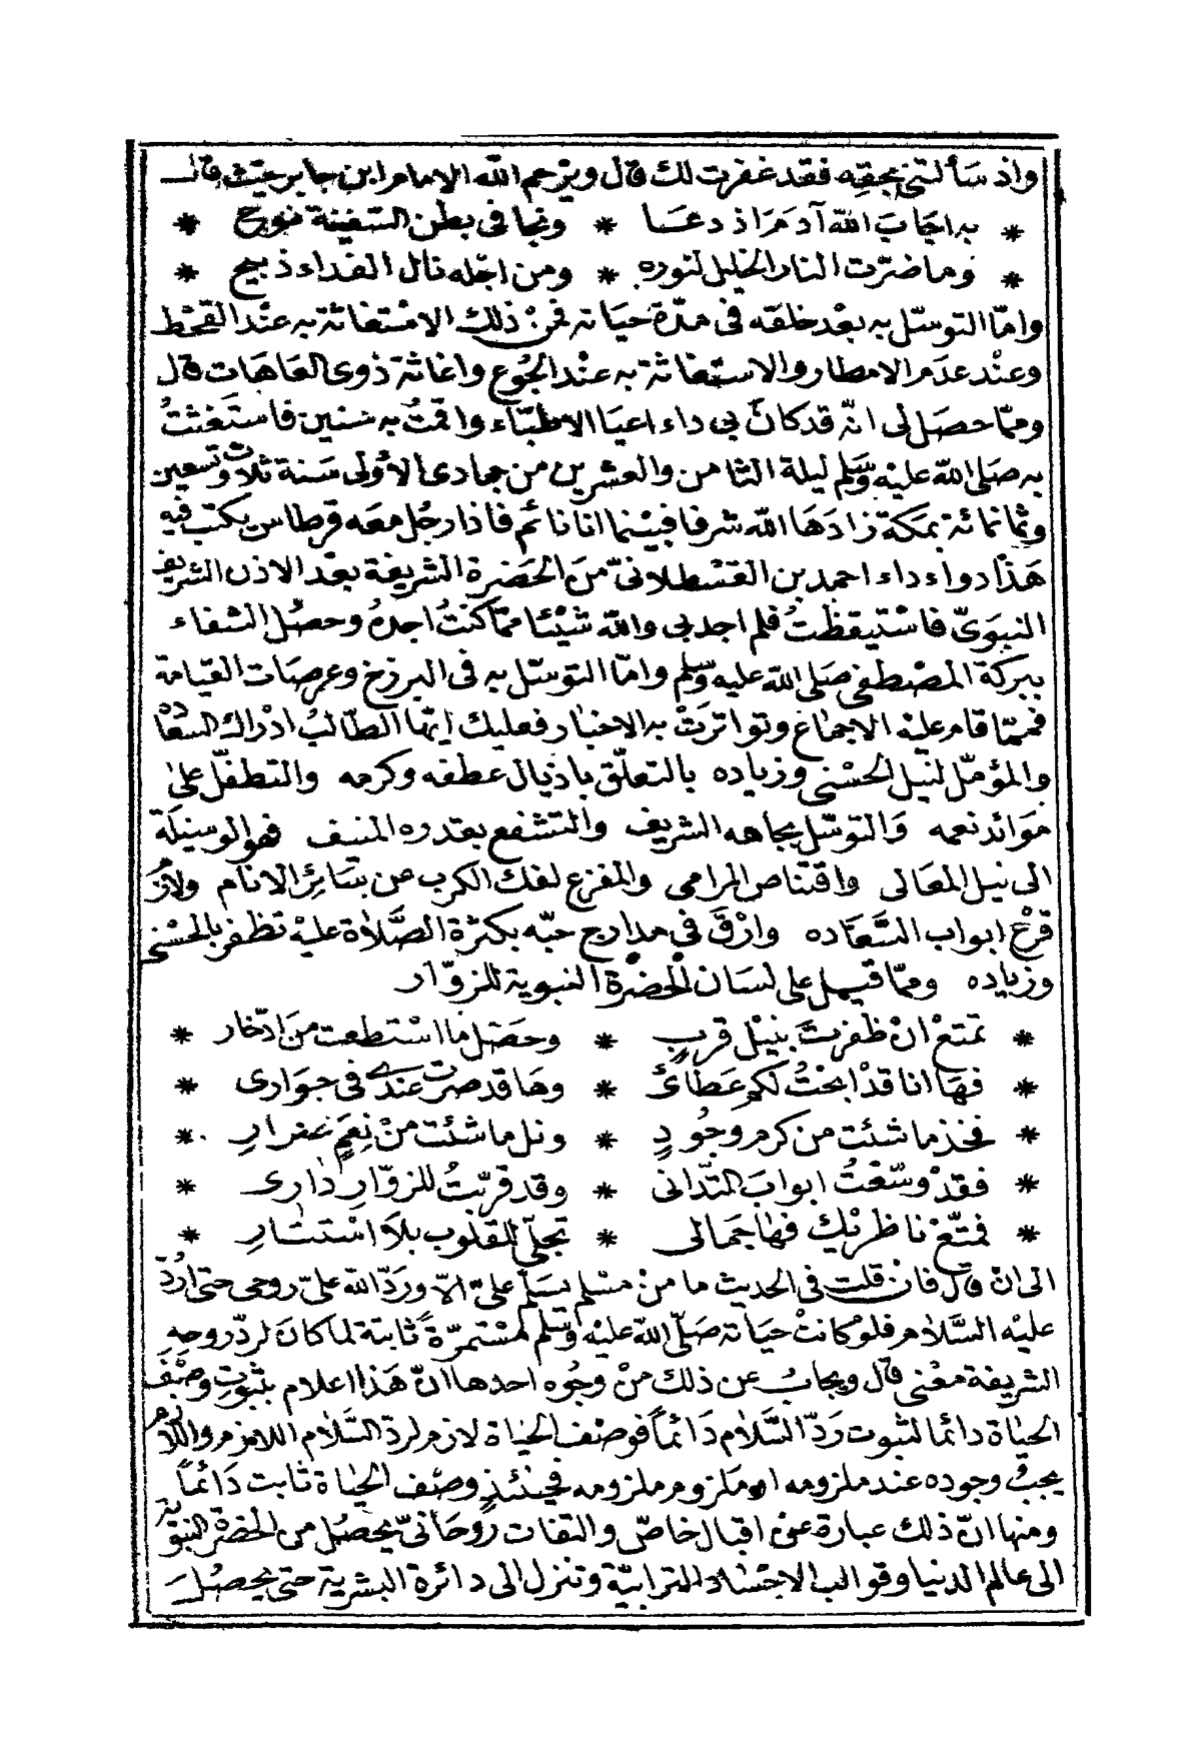 واذ سَألتني بحقِّه فقد غفرت لك قال ويَرحم الله الامام ابن جابر حيث قال
* به اجَابَ الله آدمَ اذ دعَا * ونجا في بطن السّفينة نوح *
* وما ضرّت النار الخليل لنوره * ومن اجْله نال الفداء ذبيح *
وامّا التوسّل به بعْد خلقه في مدّة حيَاته فمنْ ذلك الاسْتغاثة به عنْد القحْط
وعنْد عدَم الامطار والاستغاثة به عنْد الجُوع واغاثة ذوي العَاهَات قال
وممّا حصَل لي انّه قد كانَ بي داء اعيَا الاطبّاء واقمتُ به سنين فاستَغثتُ
به صَلى الله عليْه وسَلم ليلة الثامن والعشرين من جمادى الأولى سَنة ثلاث وتسعين
وثمانمائة بمَكة زادهَا الله شرفا فبيْنما انا نائم فاذا رجُل معَه قرطاس يكتب فيه
هَذا دواء داء احمد بن القسْطلانيّ منَ الحَضرة الشّريفة بعْد الاذن الشريف
النبَويّ فاسْتيقظْتُ فلم اجد بي والله شيْئا ممّا كنتُ اجدهُ وحصَل الشفاء
ببركة المصْطفى صَلى الله عليه وسلم وامّا التوسّل به في البرزخ وعرصَات القيامة
فممّا قام عليْه الاجماع وتواترَتْ به الاخبار فعليك ايّها الطّالبُ ادْراك السّعاده
والمؤمّل لنيل الحسْنى وزياده بالتعلّق باذيال عطفه وكرمه والتطفّل على
موَائد نعمه وَالتوسّل بجاهه الشريف والتشفع بقدره المنيف فهو الوسيلَة
الى نيل المعَالي واقتناص المرامي والمفزع لفك الكرب عن سَائر الانام ولازم
قرْعْ ابواب السَّعَاده وارْقَ في مدارج حبّه بكثرة الصَّلاة عليْه تظفر بالحسْنى
وزياده وممّا قيل على لسَان الحضْرة النبوية للزوّار
* تمتعْ انْ ظفرتَ بنيْل قربٍ * وحصّل ما اسْتطعت منَ ادّخار *
* فهَا انا قدْ ابحْتُ لكم عَطائي * وهَا قد صرت عندي في جوَارى *
* فخذ ما شئت من كرم وجُودٍ * ونل ما شئت منْ نِعَمٍ غزارِ *
* فقدْ وسّعْتُ ابوابَ التّداني * وقد قرّبتُ للزوّارِ دارِى *
* فمتّعْ ناظرَيْك فها جَمالي * تجلّي للقلوب بلاَ اسْتتَارِ *
الى ان قال فان قلت في الحديث ما من مسْلم يسَلّم عليّ الاّ وردَّ الله عليّ روحي حتى ارُدّ
عليْه السَّلام فلو كانتْ حيَاته صَلّى الله عليْه وسَلّم مسْتمرّةً ثابتة لما كانَ لردّ روحهِ
الشريفة معْنى قال ويجابُ عن ذلك منْ وجُوه احدها انّ هَذا اعلام بثبُوتِ وصْفَ
الحيَاة دائما لثبوت ردّ السَّلام دَائماً فوصْف الحيَاة لازم لردّ السَّلام اللازم واللازم
يجبُ وجوده عند ملزومه او مَلزوم ملزومه فحينئذٍ وصْف الحيَاة ثابت دَائماً
ومنها انّ ذلك عبارة عن اقبال خاصّ والتفات رُوحَانيّ يحصُل من الحضرة النبوّية
الى عالم الدنيا وقوالب الاجْسَاد الترابيّة وتنزل الى دائرة البشرية حتى يحصُلَ